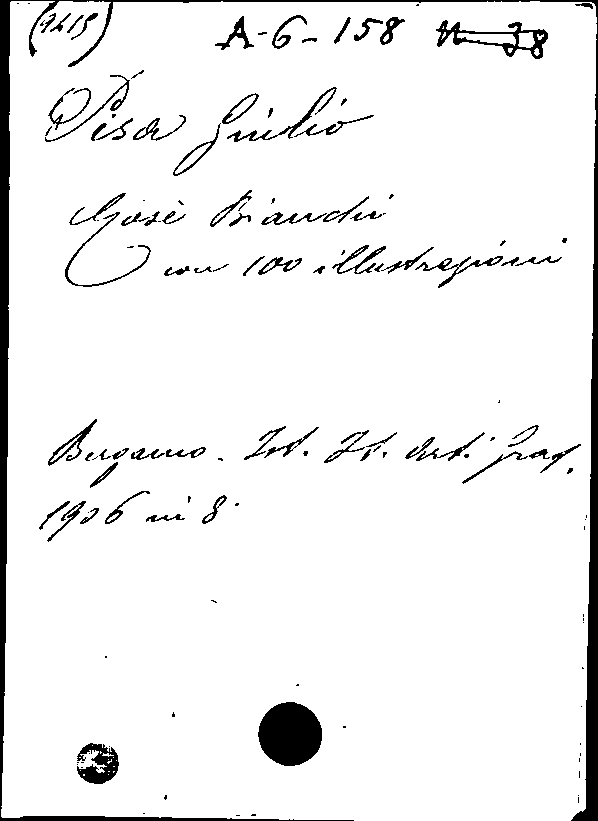 (9415) A-6-158 N 38
Pisa Giulio
Mosè Bianchi
con 100 illustrazioni
Bergamo. Ist. It. Arti Graf.
1906 in 8.